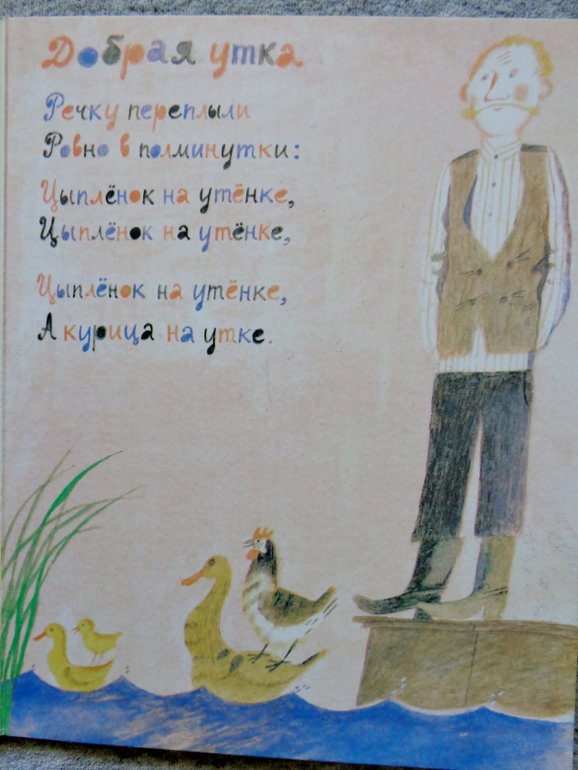 Добрая утка
Речку переплыли
Ровно в полминутки:
Цыплёнок на утёнке,
Цыплёнок на утёнке,
Цыплёнок на утёнке,
А курица на утке.